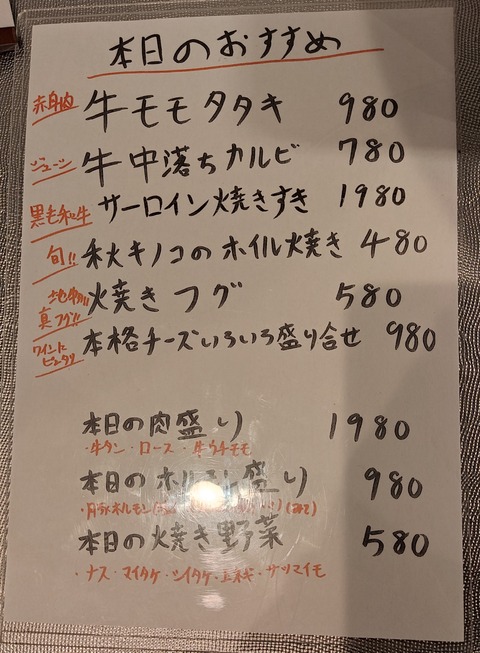 本日のおすすめ
赤身肉 牛モモタタキ 980
ジューシー 牛中落ちカルビ 780
黒毛和牛 サーロイン焼きすき 1980
旬!! 秋キノコのホイル焼き 480
地物!! 真フグ!! 焼きフグ 580
ワインにピッタリ 本格チーズいろいろ盛り合せ 980
本日の肉盛り 1980
・牛タン・ロース・牛ウチモモ
本日のホルモン盛り 980
本日の焼き野菜 580
・ナス・マイタケ・シイタケ・玉ネギ・サツマイモ